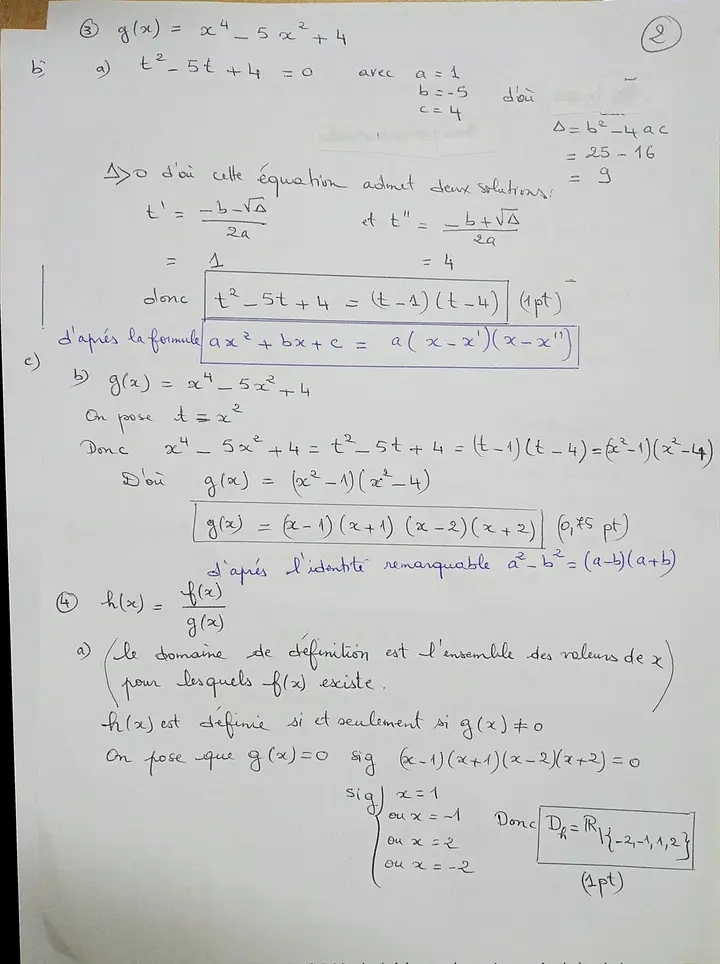 ③ g(x) = x⁴ - 5x² + 4
②
b) a) t² - 5t + 4 = 0 avec a = 1
b = -5 d'où
c = 4
Δ = b² - 4ac
= 25 - 16
= 9
Δ>0 d'où cette équation admet deux solutions:
t' = (-b-√Δ)/2a et t" = (-b+√Δ)/2a
= 1 = 4
donc t² - 5t + 4 = (t-1)(t-4) (1pt)
d'aprés la formule ax² + bx + c = a(x-x')(x-x")
c)
b) g(x) = x⁴ - 5x² + 4
On pose t = x²
Donc x⁴ - 5x² + 4 = t² - 5t + 4 = (t-1)(t-4) = (x²-1)(x²-4)
D'où g(x) = (x²-1)(x²-4)
g(x) = (x-1)(x+1)(x-2)(x+2) (0,75 pt)
d'aprés l'identité remarquable a² - b² = (a-b)(a+b)
④ h(x) = f(x)/g(x)
a) (le domaine de définition est l'ensemble des valeurs de x
pour lesquels f(x) existe.)
h(x) est définie si et seulement si g(x) ≠ 0
On pose que g(x)=0 sig (x-1)(x+1)(x-2)(x+2) = 0
sig x = 1
ou x = -1 Donc D_h = ℝ\{-2,-1,1,2}
ou x = 2
ou x = -2
(1pt)